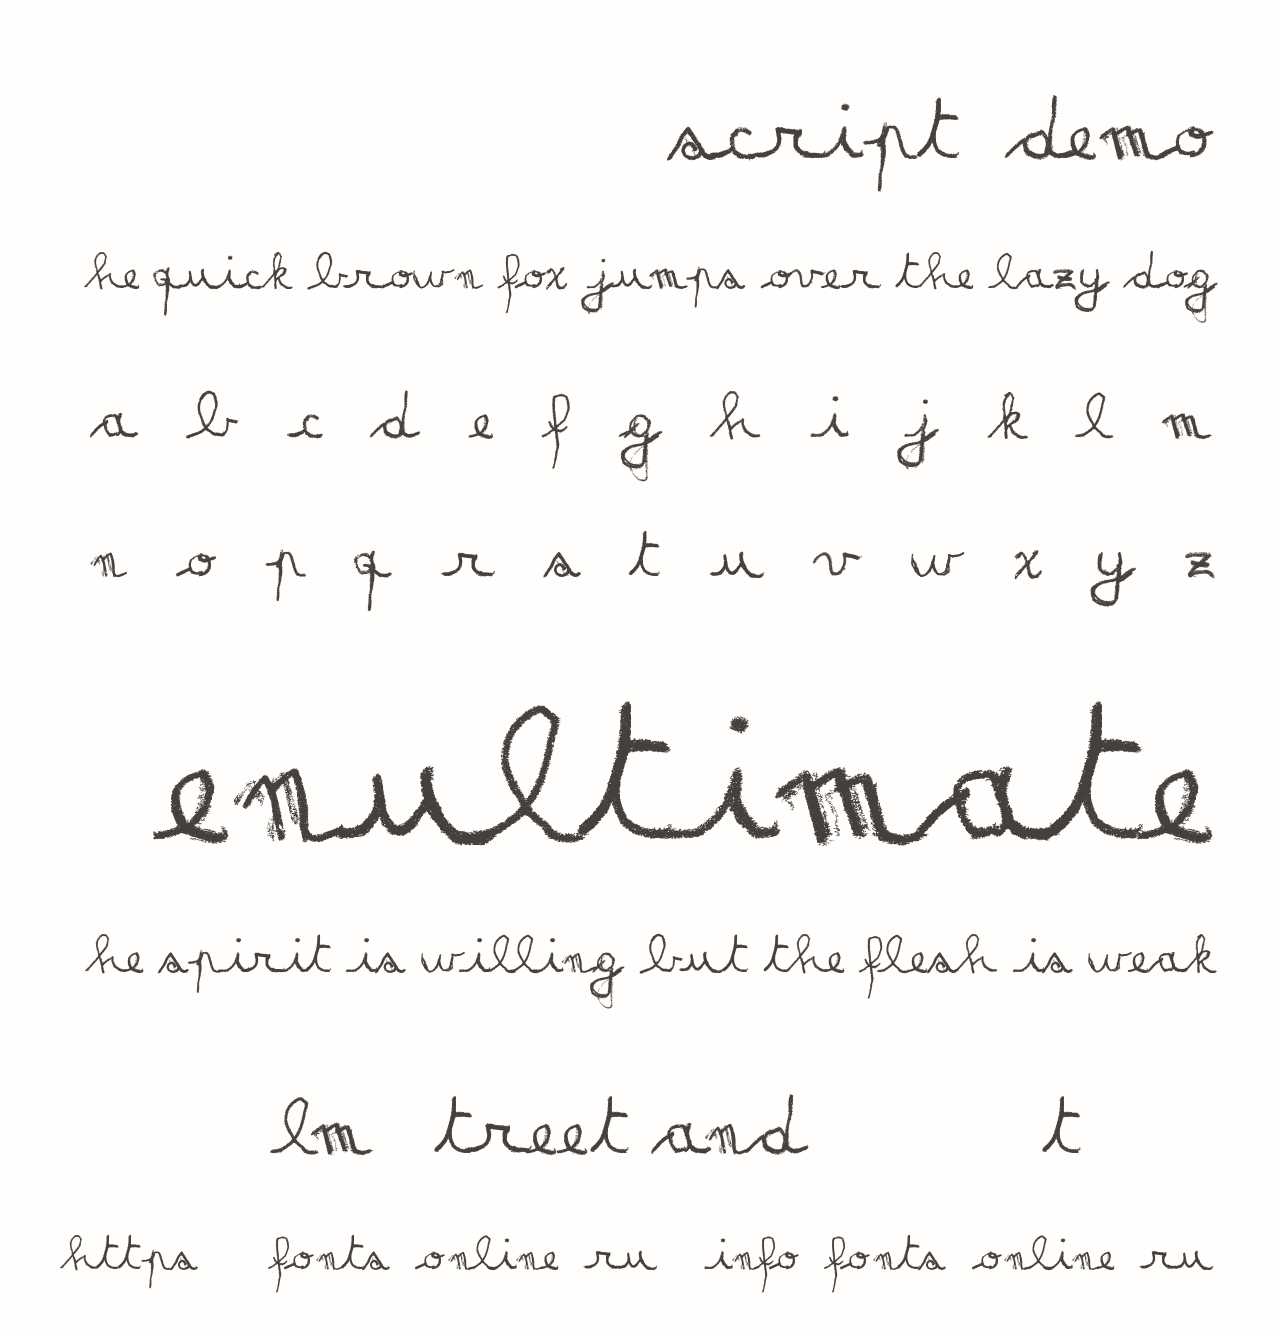 script demo
he quick brown fox jumps over the lazy dog
a b c d e f g h i j k l m
n o p q r s t u v w x y z
enultimate
he spirit is willing but the flesh is weak
lm treet and t
https fonts online ru info fonts online ru